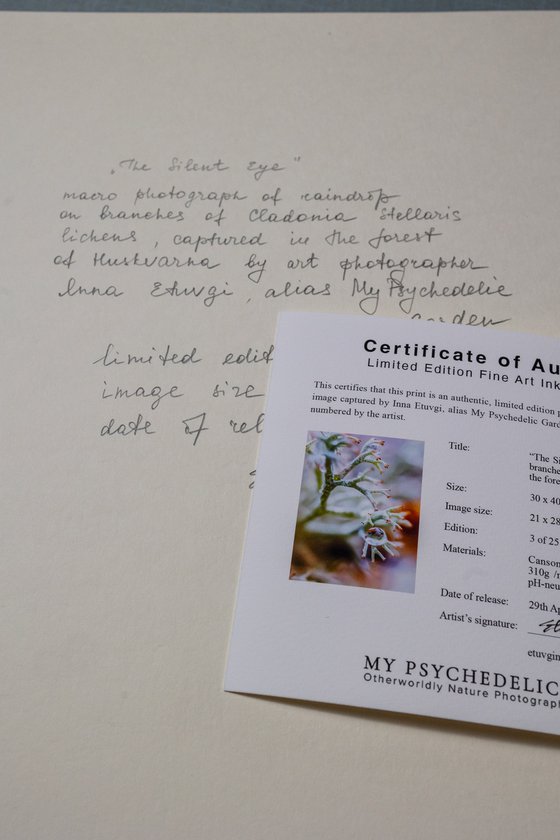 „The Silent Eye"
macro photograph of raindrop
on branches of Cladonia Stellaris
lichens, captured in the forest
of Huskvarna by art photographer
Inna Etuvgi, alias My Psychedelic
Garden
limited edit
image size
date of rel
Certificate of Au
Limited Edition Fine Art Ink
This certifies that this print is an authentic, limited edition p
image captured by Inna Etuvgi, alias My Psychedelic Gard
numbered by the artist.
Title: "The Si
branche
the fore
Size: 30 x 40
Image size: 21 x 28
Edition: 3 of 25
Materials: Canson
310g /r
pH-neu
Date of release: 29th Ap
Artist's signature:
etuvgin
MY PSYCHEDELIC
Otherworldly Nature Photograp